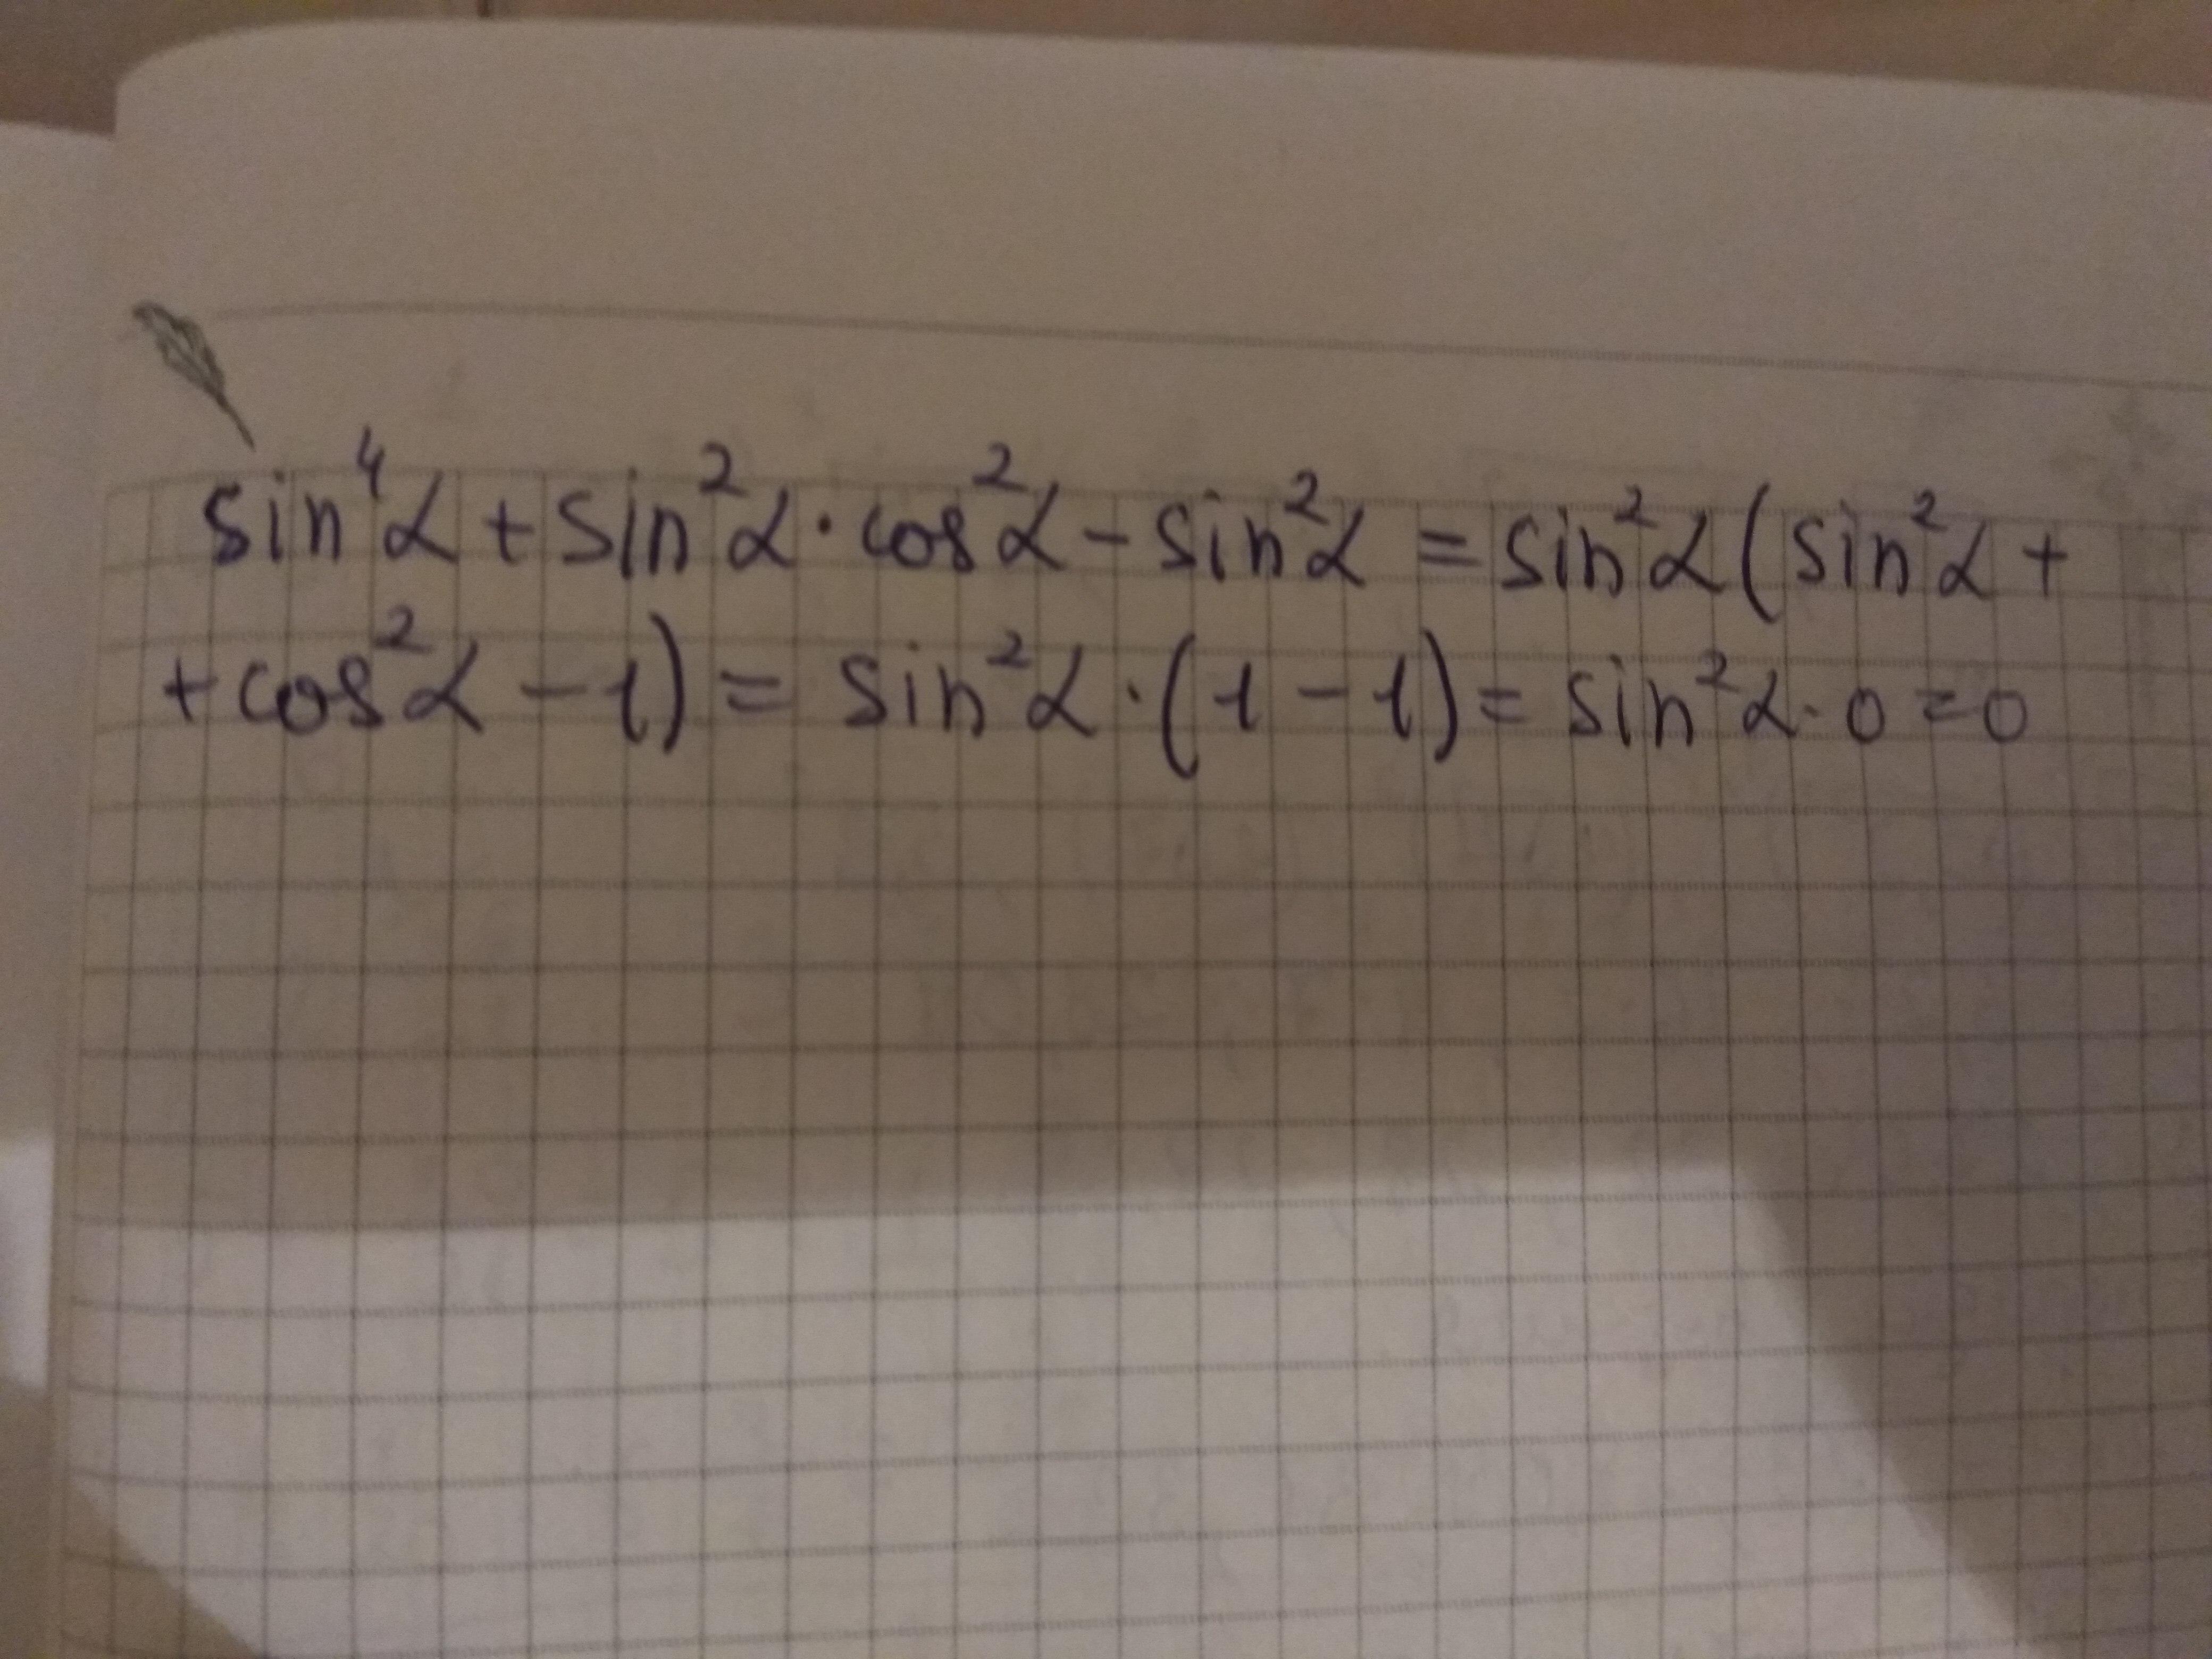 sin⁴α + sin²α · cos²α − sin²α = sin²α (sin²α +
+ cos²α − 1) = sin²α · (1 − 1) = sin²α · 0 = 0